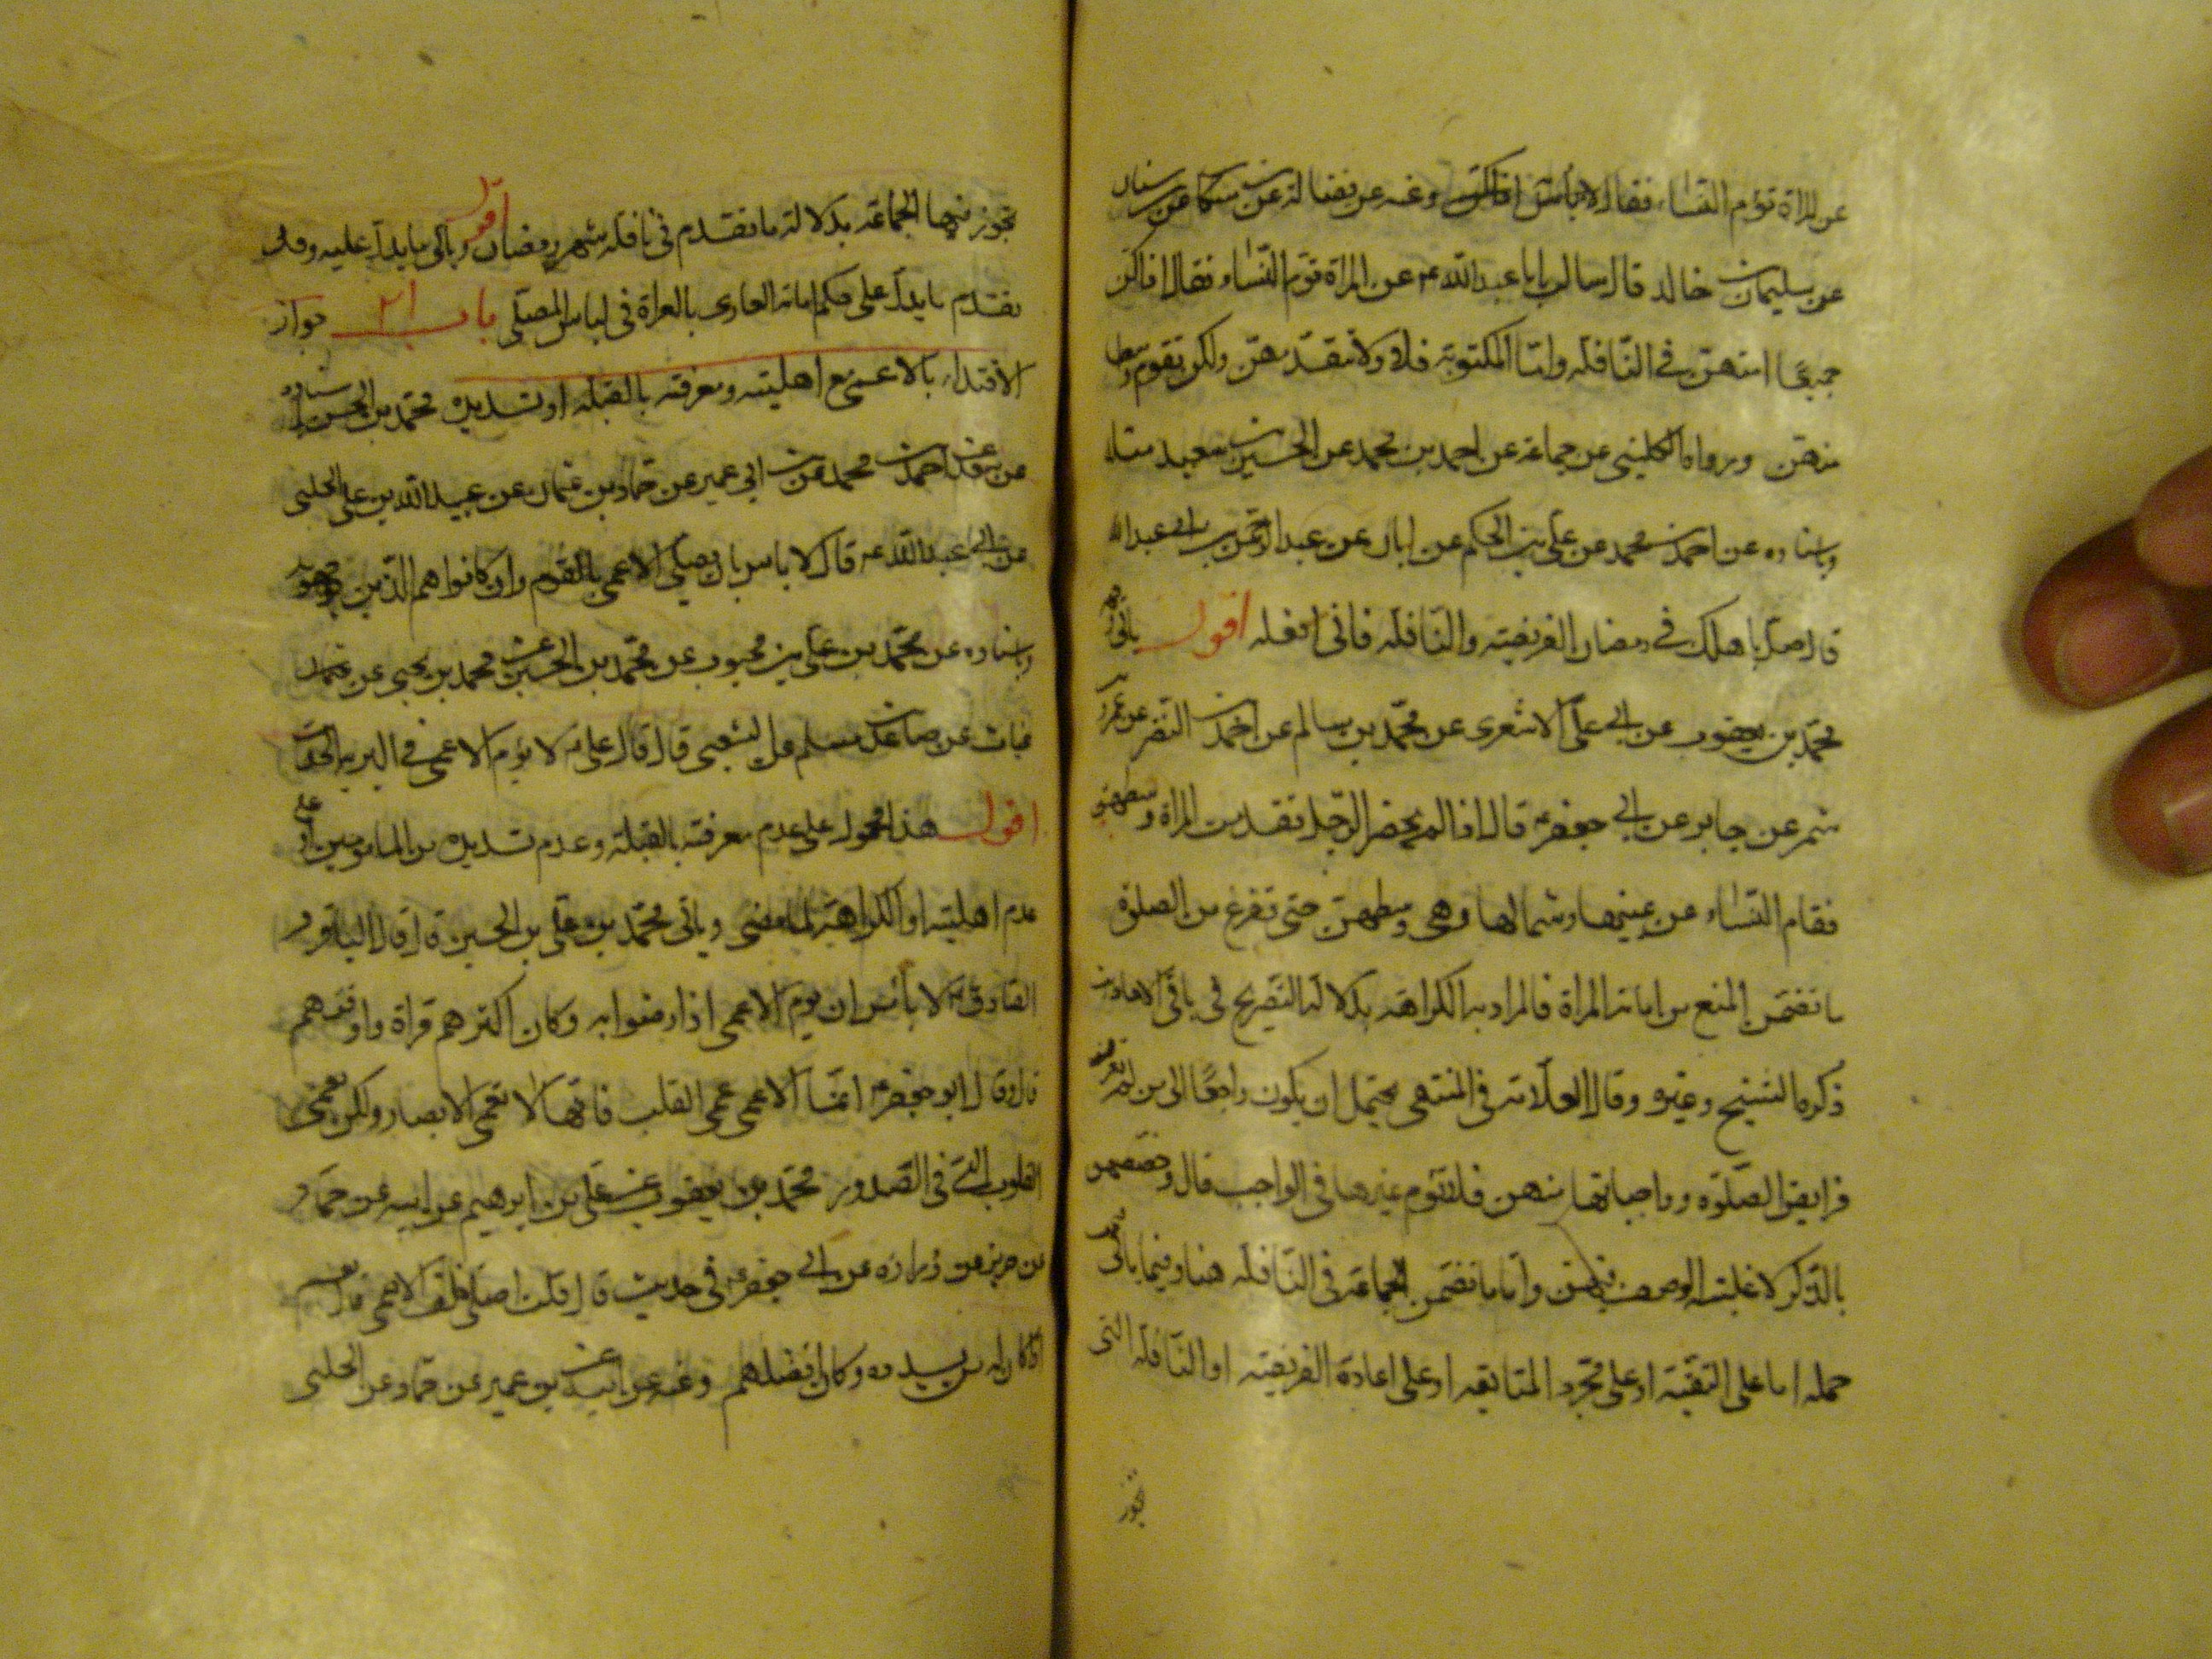 عن المراة تؤم النساء فقال لا باس به وعنه عن فضالة عن ابن سنان
عن سليمان بن خالد قال سالت ابا عبد الله ع عن المراة تؤم النساء فقال اذا كن
جميعا امتهن في النافلة واما المكتوبة فلا ولا تقدمهن ولكن تقوم وسطا
منهن ورواه الكليني عن جماعة عن احمد بن محمد عن الحسين بن سعيد مثله
وباسناده عن احمد بن محمد عن علي بن الحكم عن ابان عن عبد الرحمن بن ابي عبد الله
قال صل باهلك في رمضان الفريضة والنافلة فاني افعله اقول ياتي
محمد بن يعقوب عن ابي علي الاشعري عن محمد بن سالم عن احمد بن النضر عن عمرو بن
شمر عن جابر عن ابي جعفر ع قال اذا لم يحضر الرجل تقدمت المراة وسطهن
فقام النساء عن يمينها وشمالها وهي وسطهن حتى تفرغ من الصلوة
ما تضمن المنع من امامة المراة فالمراد به الكراهة بدلالة التصريح في باقي الاحاديث
ذكره الشيخ وغيره وقال العلامة في المنتهى يحتمل ان يكون راجعا الى من لم تعرف
فرايض الصلوة وواجباتها منهن فلا تؤم غيرها في الواجب قال وخصصهن
بالذكر لاغلبية الوصف فيهن واما ما تضمن الجماعة في النافلة هنا وفيما ياتي
حمله اما على التقية او على مجرد المتابعة او على اعادة الفريضة او النافلة التي
تجوز
تجوز فيها الجماعة بدلالة ما تقدم في نافلة شهر رمضان اقول وياتي ما يدل عليه وقد
تقدم ما يدل على حكم امامة العاري بالعراة في لباس المصلي باب ٢١ جواز
الاقتداء بالاعمى مع اهليته ومعرفته بالقبلة او تسديده محمد بن الحسن باسناده
عن سعد عن احمد بن محمد عن ابن ابي عمير عن حماد بن عثمان عن عبيد الله بن علي الحلبي
عن ابي عبد الله ع قال لا باس بان يصلي الاعمى بالقوم وان كانوا هم الذين يوجهونه
وباسناده عن محمد بن علي بن محبوب عن محمد بن الحسين عن محمد بن يحيى عن
غياث عن صاعد بن مسلم عن الشعبي قال قال علي ع لا يؤم الاعمى في البرية الحديث
اقول هذا محمول على عدم معرفته بالقبلة وعدم تسديده من المامومين او على
عدم اهليته او الكراهة لما مضى وياتي محمد بن علي بن الحسين قال قال الباقر و
الصادق ع لا بأس ان يؤم الاعمى اذا رضوا به وكان اكثرهم قراة وافقههم
قال وقال ابو جعفر ع انما الاعمى عمى القلب فانها لا تعمى الابصار ولكن تعمى
القلوب التي في الصدور محمد بن يعقوب عن علي بن ابرهيم عن ابيه عن حماد
عن حريز عن زرارة عن ابي جعفر ع في حديث قال قلت اصلي خلف الاعمى قال نعم
اذا كان له من يسدده وكان افضلهم وعنه عن ابيه عن ابن ابي عمير عن حماد عن الحلبي